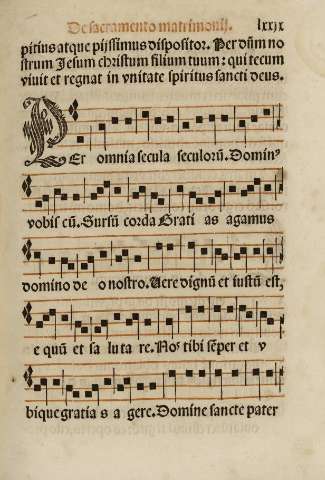 De sacramento matrimonij. lxxix
pitius atque pijssimus dispositor. Per dūm no
strum Jesum christum filium tuum: qui tecum
viuit et regnat in vnitate spiritus sancti deus.
Per omnia secula seculorū. Dominꝰ
vobis cū. Sursū corda Grati as agamus
domino de o nostro. Uere dignū et iustū est,
e quū et sa lu ta re. Nos tibi sēper et v
bique gratia s a gere. Domine sancte pater